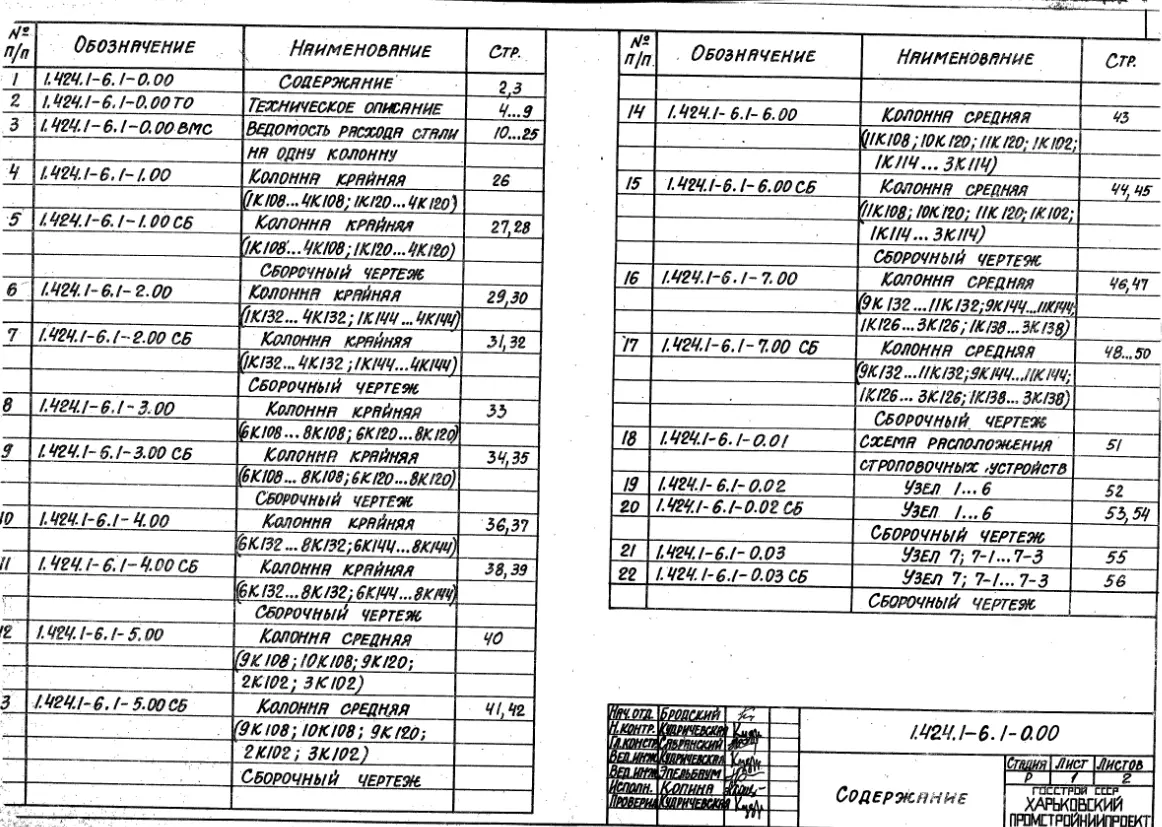 № п/п Обозначение Наименование Стр.
1 1.424.1-6.1-0.00 Содержание 2,3
2 1.424.1-6.1-0.00 ТО Техническое описание 4...9
3 1.424.1-6.1-0.00 ВМС Ведомость расхода стали 10...25
на одну колонну
4 1.424.1-6.1-1.00 Колонна крайняя 26
(1К108...4К108; 1К120...4К120)
5 1.424.1-6.1-1.00 СБ Колонна крайняя 27,28
(1К108...4К108; 1К120...4К120)
Сборочный чертеж
6 1.424.1-6.1-2.00 Колонна крайняя 29,30
(1К132...4К132; 1К144...4К144)
7 1.424.1-6.1-2.00 СБ Колонна крайняя 31,32
(1К132...4К132; 1К144...4К144)
Сборочный чертеж
8 1.424.1-6.1-3.00 Колонна крайняя 33
(6К108...8К108; 6К120...8К120)
9 1.424.1-6.1-3.00 СБ Колонна крайняя 34,35
(6К108...8К108; 6К120...8К120)
Сборочный чертеж
10 1.424.1-6.1-4.00 Колонна крайняя 36,37
(6К132...8К132; 6К144...8К144)
11 1.424.1-6.1-4.00 СБ Колонна крайняя 38,39
(6К132...8К132; 6К144...8К144)
Сборочный чертеж
12 1.424.1-6.1-5.00 Колонна средняя 40
(9К108; 10К108; 9К120;
2К102; 3К102)
3 1.424.1-6.1-5.00 СБ Колонна средняя 41,42
(9К108; 10К108; 9К120;
2К102; 3К102)
Сборочный чертеж
№ п/п Обозначение Наименование Стр.
14 1.424.1-6.1-6.00 Колонна средняя 43
(11К108; 10К120; 11К120; 1К102;
1К114...3К114)
15 1.424.1-6.1-6.00 СБ Колонна средняя 44,45
(11К108; 10К120; 11К120; 1К102;
1К114...3К114)
Сборочный чертеж
16 1.424.1-6.1-7.00 Колонна средняя 46,47
(9К132...11К132; 9К144...11К144;
1К126...3К126; 1К138...3К138)
17 1.424.1-6.1-7.00 СБ Колонна средняя 48...50
(9К132...11К132; 9К144...11К144;
1К126...3К126; 1К138...3К138)
Сборочный чертеж
18 1.424.1-6.1-0.01 Схема расположения 51
строповочных устройств
19 1.424.1-6.1-0.02 Узел 1...6 52
20 1.424.1-6.1-0.02 СБ Узел 1...6 53,54
Сборочный чертеж
21 1.424.1-6.1-0.03 Узел 7; 7-1...7-3 55
22 1.424.1-6.1-0.03 СБ Узел 7; 7-1...7-3 56
Сборочный чертеж
Нач.отд. Бродский
Н.контр. Кудричевская
Гл.констр Савранский
Вед.инж Кудричевская
Вед.инж Эпельбаум
Исполн. Копина
Проверил Кудричевская
1.424.1-6.1-0.00
Содержание
Стадия Лист Листов
Р 1 2
Госстрой СССР
Харьковский
Промстройниипроект